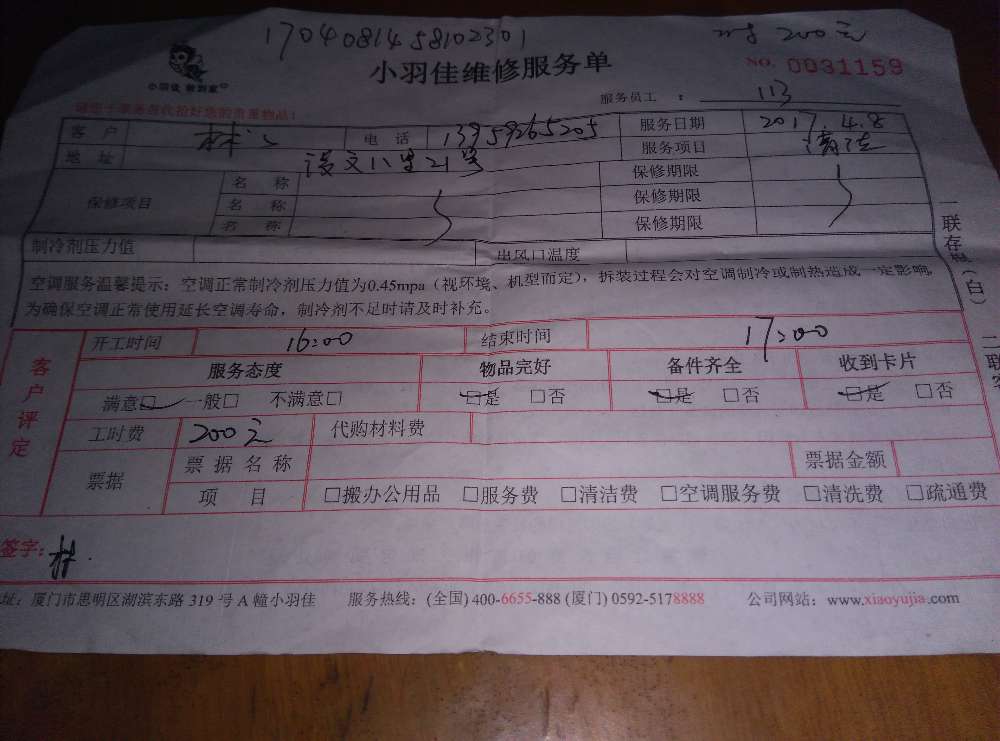 1704081458102301
200元
小羽佳维修服务单
NO. 0031159
小羽佳 帮到家
服务员工 : 113
客户 林 电话 13959265205 服务日期 2017.4.8
地址 21号 服务项目 清洁
保修项目 名称 保修期限
名称 保修期限
名称 保修期限
制冷剂压力值 出风口温度
空调服务温馨提示:空调正常制冷剂压力值为0.45mpa(视环境、机型而定),拆装过程会对空调制冷或制热造成一定影响,
为确保空调正常使用延长空调寿命,制冷剂不足时请及时补充。
一联存 (白)
二联客
客户评定
开工时间 16:00 结束时间 17:00
服务态度 物品完好 备件齐全 收到卡片
满意□ 一般□ 不满意□ □是 □否 □是 □否 □是 □否
工时费 200元 代购材料费
票据 票据名称 票据金额
项目 □搬办公用品 □服务费 □清洁费 □空调服务费 □清洗费 □疏通费
签字: 林
址:厦门市思明区湖滨东路 319 号 A 幢小羽佳 服务热线:(全国) 400-6655-888 (厦门) 0592-5178888 公司网站:www.xiaoyujia.com